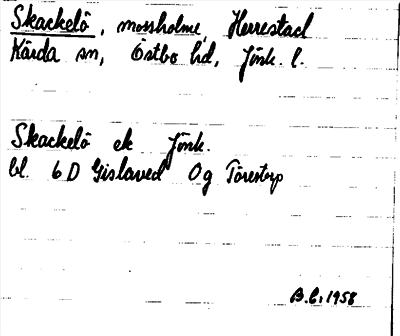 Skackelö, mossholme, Herrestad
Kärda sn, Östbo hd, Jönk. l.
Skackelö ek Jönk.
bl. 6D Gislaved Og Törestorp
B.L. 1958